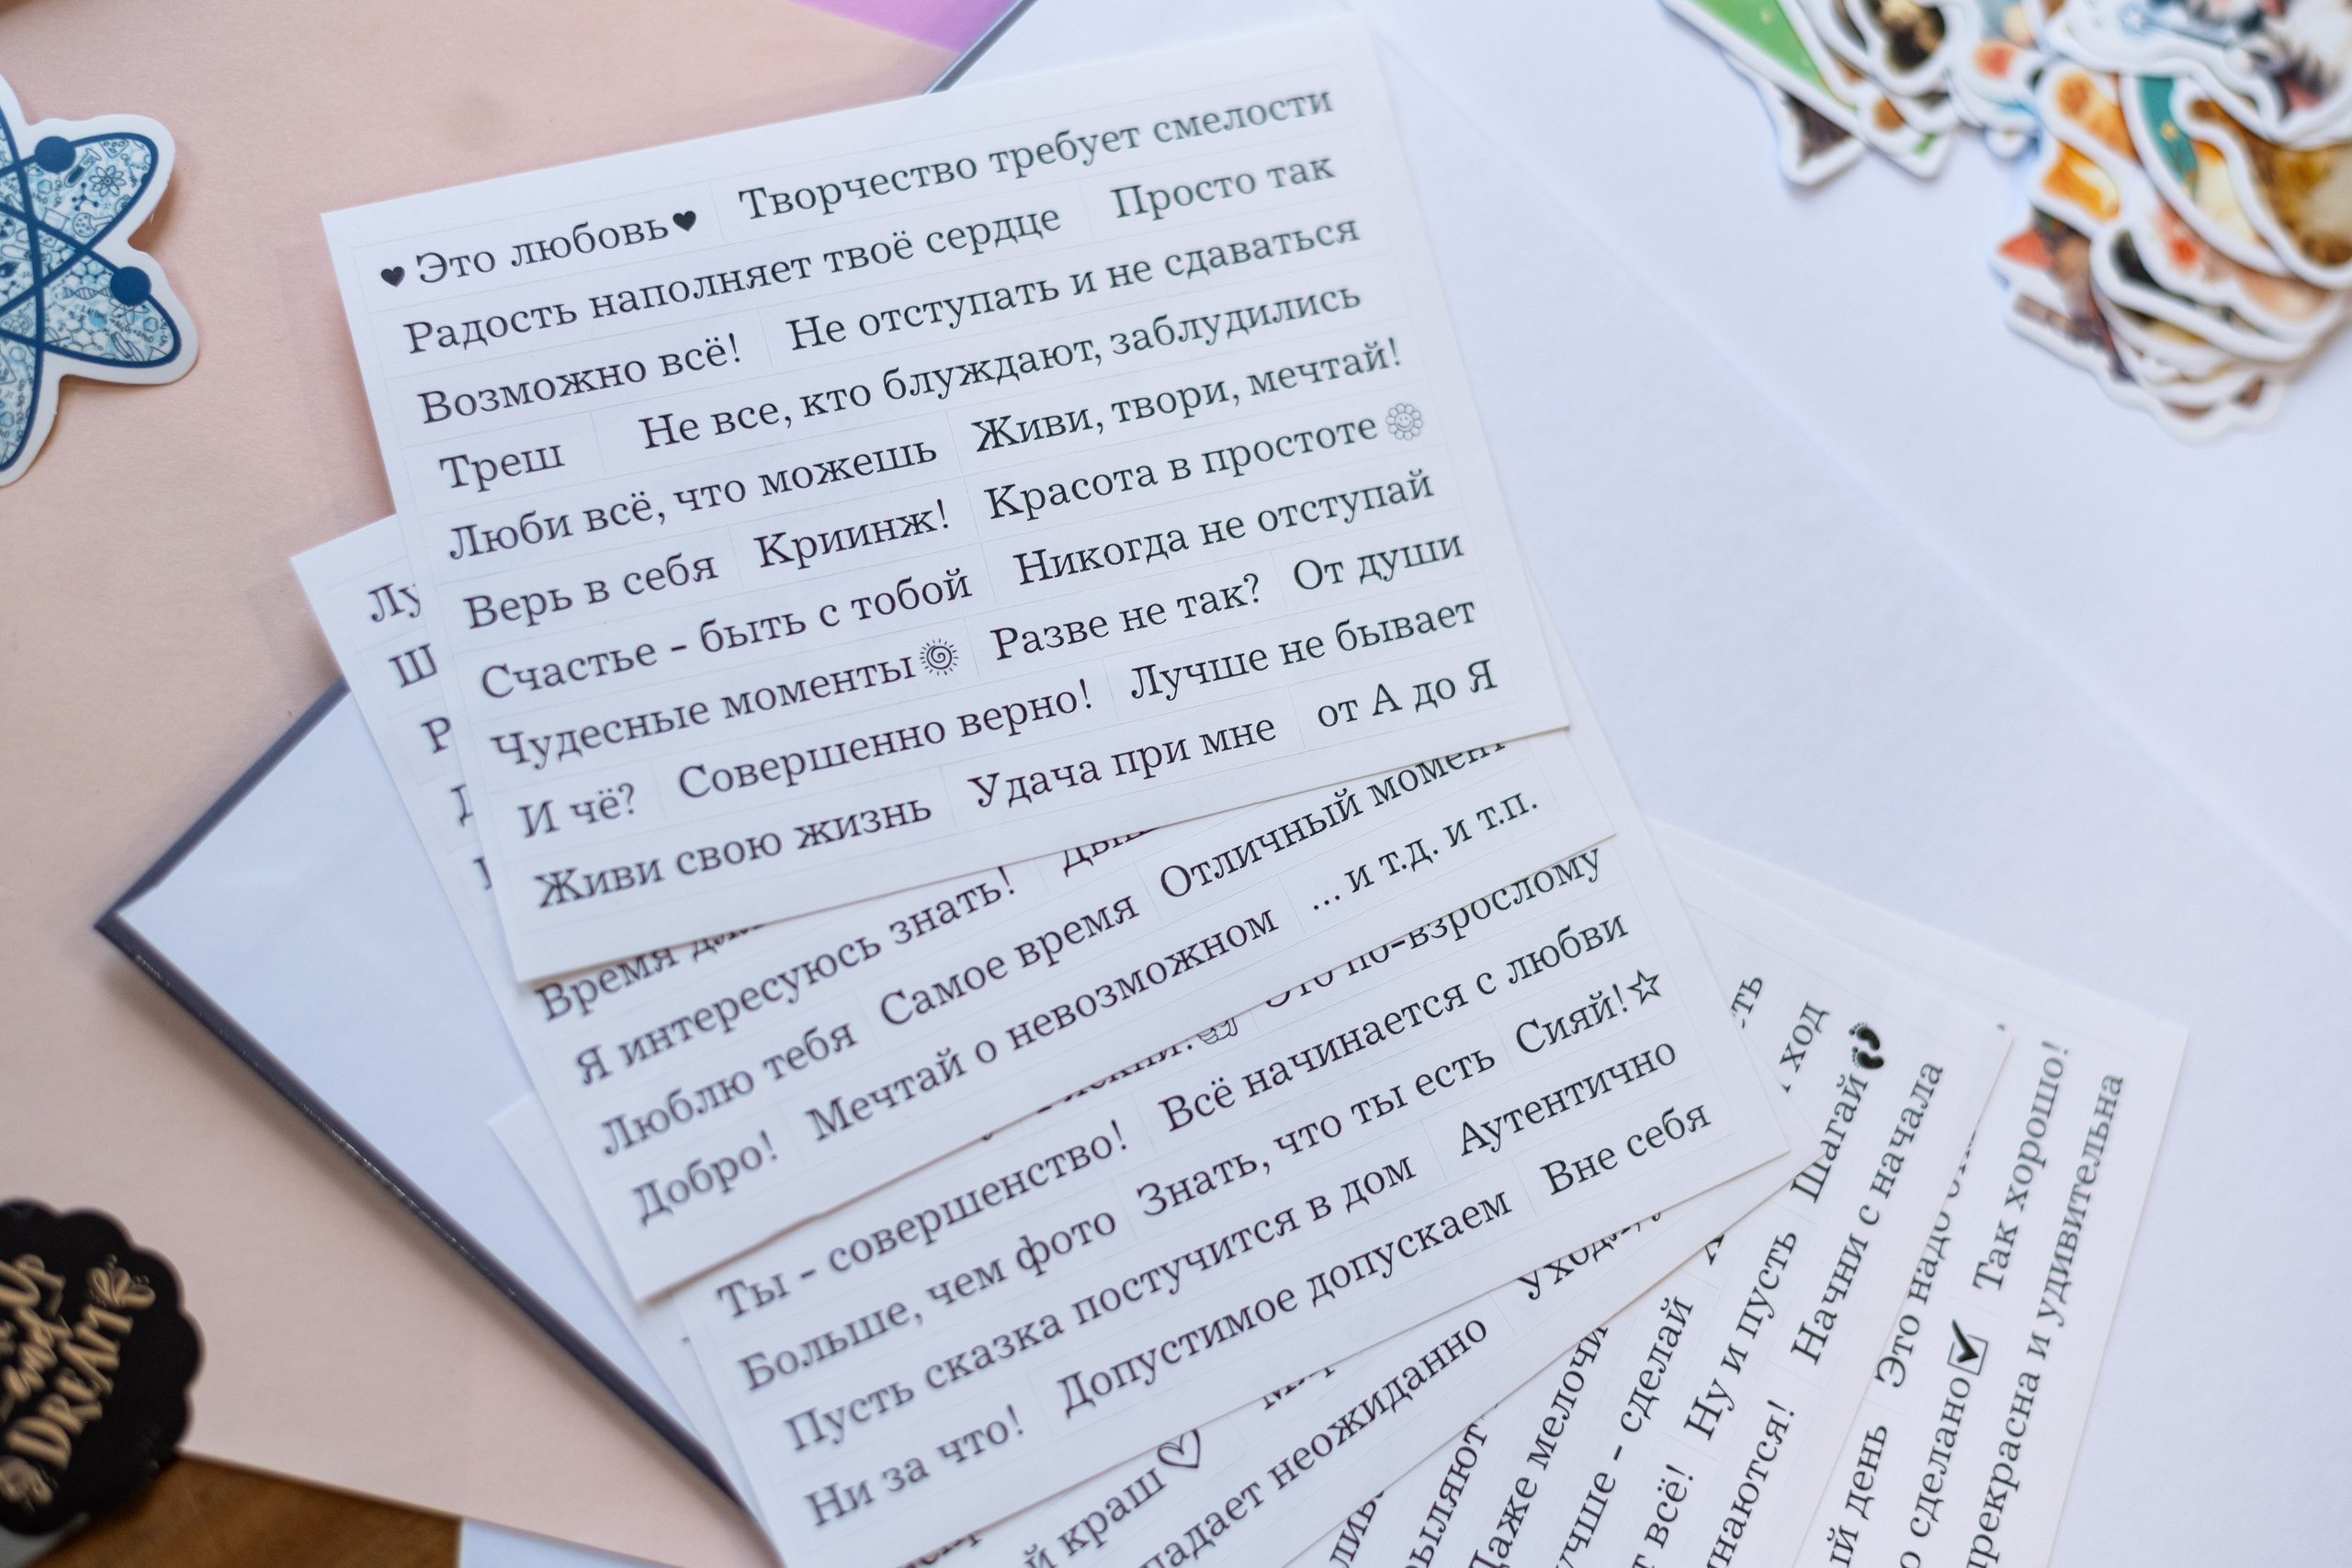 Это любовь Творчество требует смелости
Радость наполняет твоё сердце Просто так
Возможно всё! Не отступать и не сдаваться
Треш Не все, кто блуждают, заблудились
Люби всё, что можешь Живи, твори, мечтай!
Верь в себя Криинж! Красота в простоте
Счастье - быть с тобой Никогда не отступай
Чудесные моменты Разве не так? От души
И чё? Совершенно верно! Лучше не бывает
Живи свою жизнь Удача при мне от А до Я
Время
Я интересуюсь знать! Отличный момент
Люблю тебя Самое время ... и т.д. и т.п.
Добро! Мечтай о невозможном
Это по-взрослому
Ты - совершенство! Всё начинается с любви
Больше, чем фото Знать, что ты есть Сияй!
Пусть сказка постучится в дом Аутентично
Ни за что! Допустимое допускаем Вне себя
краш
неожиданно
мелочи
сделай
всё! Ну и пусть Шагай
Начни с начала
день Это надо
сделано Так хорошо!
прекрасна и удивительна
and
DREAM